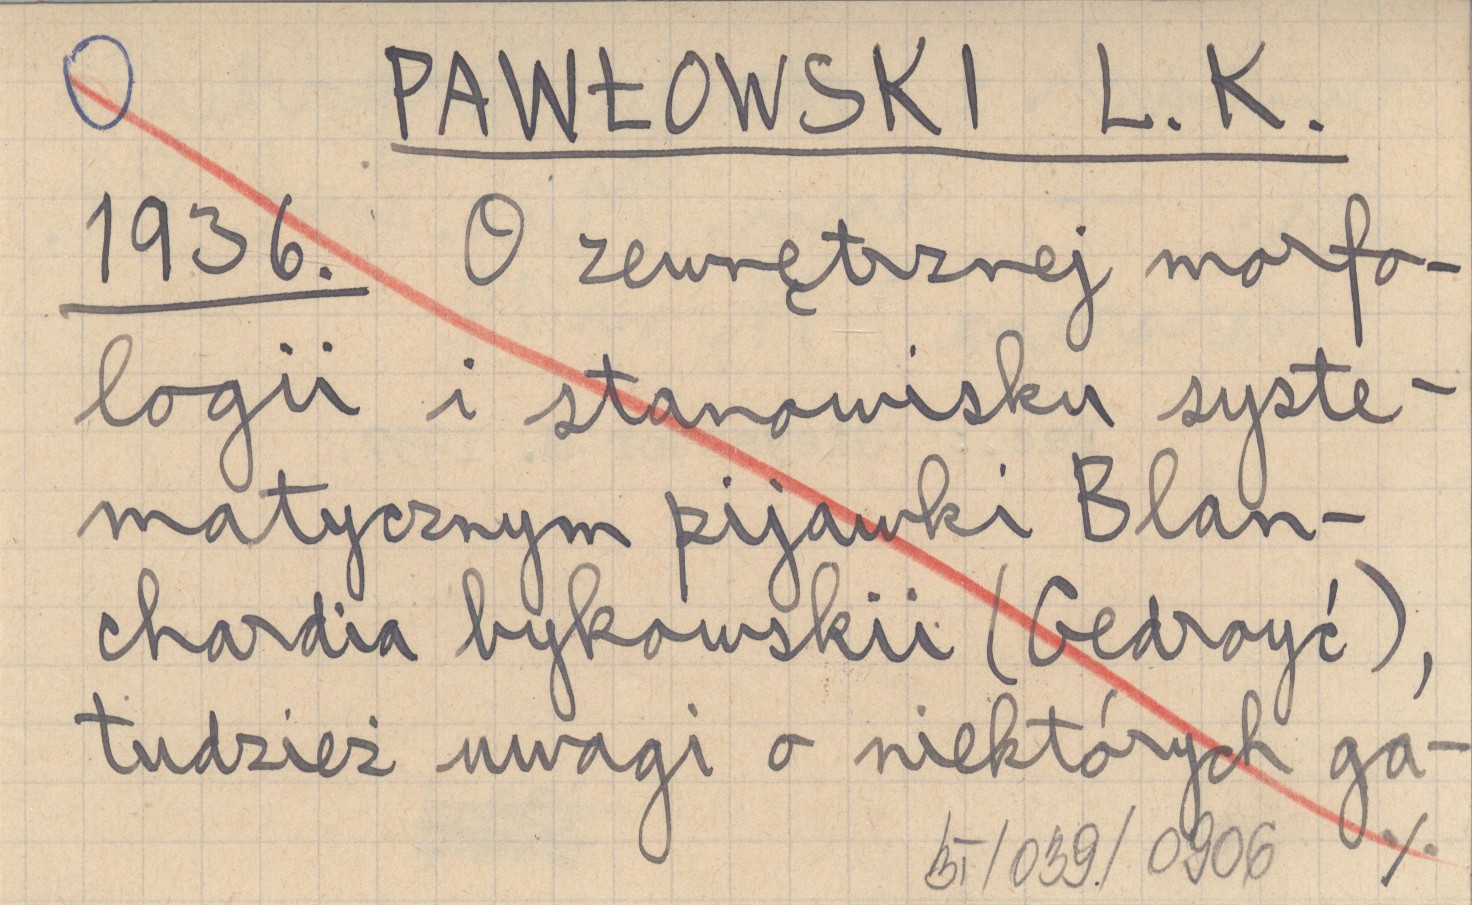 PAWŁOWSKI L. K.
1936. O zewnętrznej morfo-
logii i stanowisku syste-
matycznym pijawki Blan-
chardia bykowskii (Gedroyć),
tudzież uwagi o niektórych ga-
/039/0906 ./.